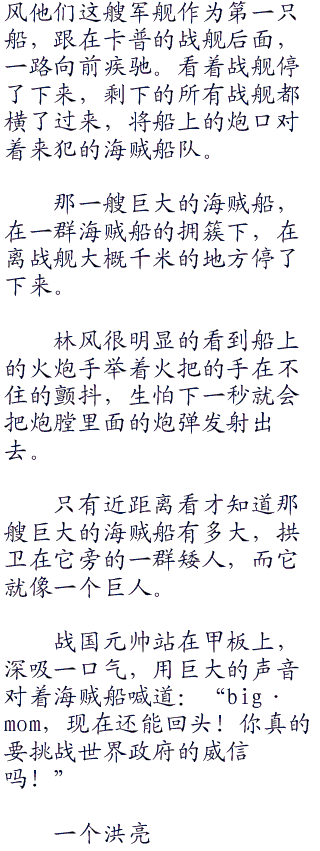 风他们这艘军舰作为第一只
船，跟在卡普的战舰后面，
一路向前疾驰。看着战舰停
了下来，剩下的所有战舰都
横了过来，将船上的炮口对
着来犯的海贼船队。
那一艘巨大的海贼船，
在一群海贼船的拥簇下，在
离战舰大概千米的地方停了
下来。
林风很明显的看到船上
的火炮手举着火把的手在不
住的颤抖，生怕下一秒就会
把炮膛里面的炮弹发射出
去。
只有近距离看才知道那
艘巨大的海贼船有多大，拱
卫在它旁的一群矮人，而它
就像一个巨人。
战国元帅站在甲板上，
深吸一口气，用巨大的声音
对着海贼船喊道：“big·
mom，现在还能回头！你真的
要挑战世界政府的威信
吗！”
一个洪亮